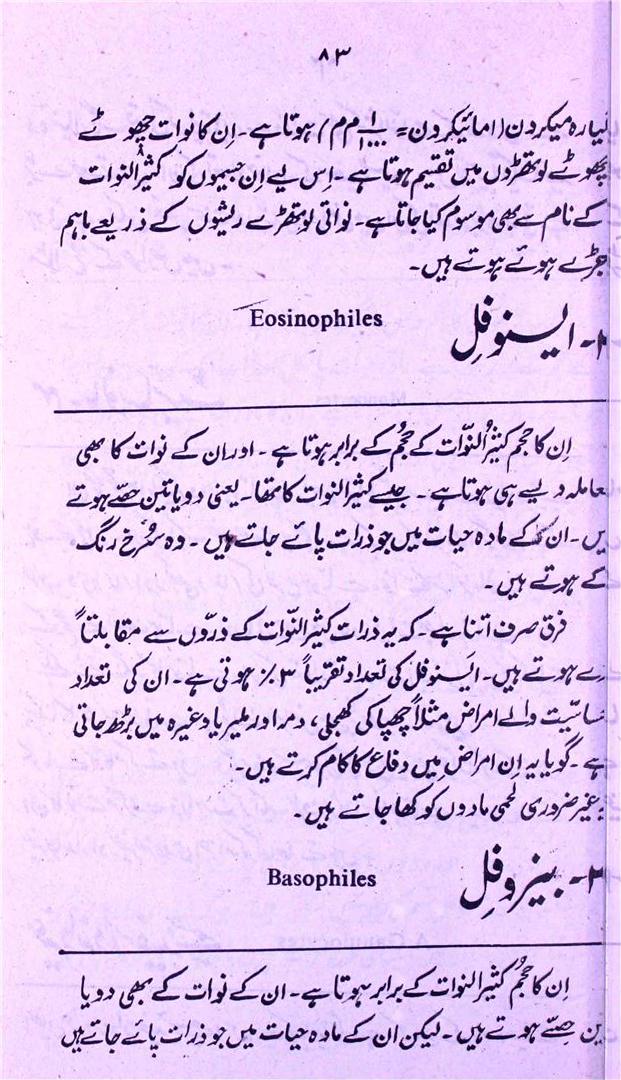 ۸۳
گیارہ میکردن (امائیکردن = ۱/۱۰۰۰ م م) ہوتا ہے۔ اِن کا نوات چھوٹے
چھوٹے لوتھڑوں میں تقسیم ہوتا ہے۔ اِس لیے اِن جسیموں کو کثیرُالنوات
کے نام سے بھی موسوم کیا جاتا ہے۔ نواتی لوتھڑے ریشوں کے ذریعے باہم
جڑے ہوئے ہوتے ہیں۔
۲۔ ایسنوفِل Eosinophiles
اِن کا حجم کثیرُالنوّات کے حجُم کے برابر ہوتا ہے۔ اور ان کے نوات کا بھی
معاملہ ویسے ہی ہوتا ہے۔ جیسے کثیرالنوات کا تھا۔ یعنی دو یا تین حصّے ہوتے
ہیں۔ ان کے مادہ حیات میں جو ذرات پائے جاتے ہیں۔ وہ سُرخ رنگ
کے ہوتے ہیں۔
فرق صرف اتنا ہے۔ کہ یہ ذرات کثیرالنوّات کے ذرّوں سے مقابلتاً
بڑے ہوتے ہیں۔ ایسنوفل کی تعداد تقریباً ۳٪ ہوتی ہے۔ ان کی تعداد
حساسیّت والے امراض مثلاً چھپاکی کھجلی، دمہ اور ملیریا وغیرہ میں بڑھ جاتی
ہے۔ گویا یہ اِن امراض میں دفاع کا کام کرتے ہیں۔
غیر ضروری لحمی مادوں کو کھا جاتے ہیں۔
۳۔ بیزوفِل Basophiles
اِن کا حجُم کثیرالنوات کے برابر ہوتا ہے۔ ان کے نوات کے بھی دو یا
تین حصّے ہوتے ہیں۔ لیکن ان کے مادہ حیات میں جو ذرات پائے جاتے ہیں